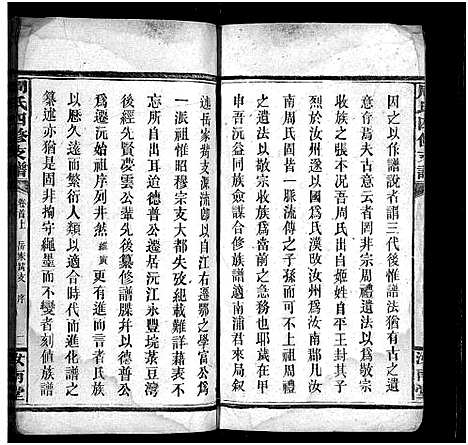 周氏四修支譜
因之或者說者謂三代後惟譜法猶有古之遺
意焉蒍夫古意云者罔非宗周禮遺法以為敬宗
收族之根本不忘吾周氏出自姬姓自平王封子
烈於汝州以國為氏漢改汝州為汝南郡凡汝
南周氏固皆一脈流傳之子孫於二千年前上祖
之遺法敬宗收族為當前之急務也耶歲在甲
申吾沅湘各族僉謀合修族譜適南浦君來自
汝南堂
述岳家蒍支源流即以自江右遷鄂之學富公為
一派祖惟昭穆宗支大都失攷紀載難詳藉表不
忘所自出迨德普公遷居沅江永豐垸菱荳灣
後經先賢夢雲公輩先後纂修譜牒并以德普公
為遷沅始祖序列井然 更有進而言者
以歷久遠而繁衍人類以適合時代而進化譜之
纂述亦猶是固非拘守繩墨而不變者刻值族譜
周氏四修支譜
卷首上
序
汝南堂